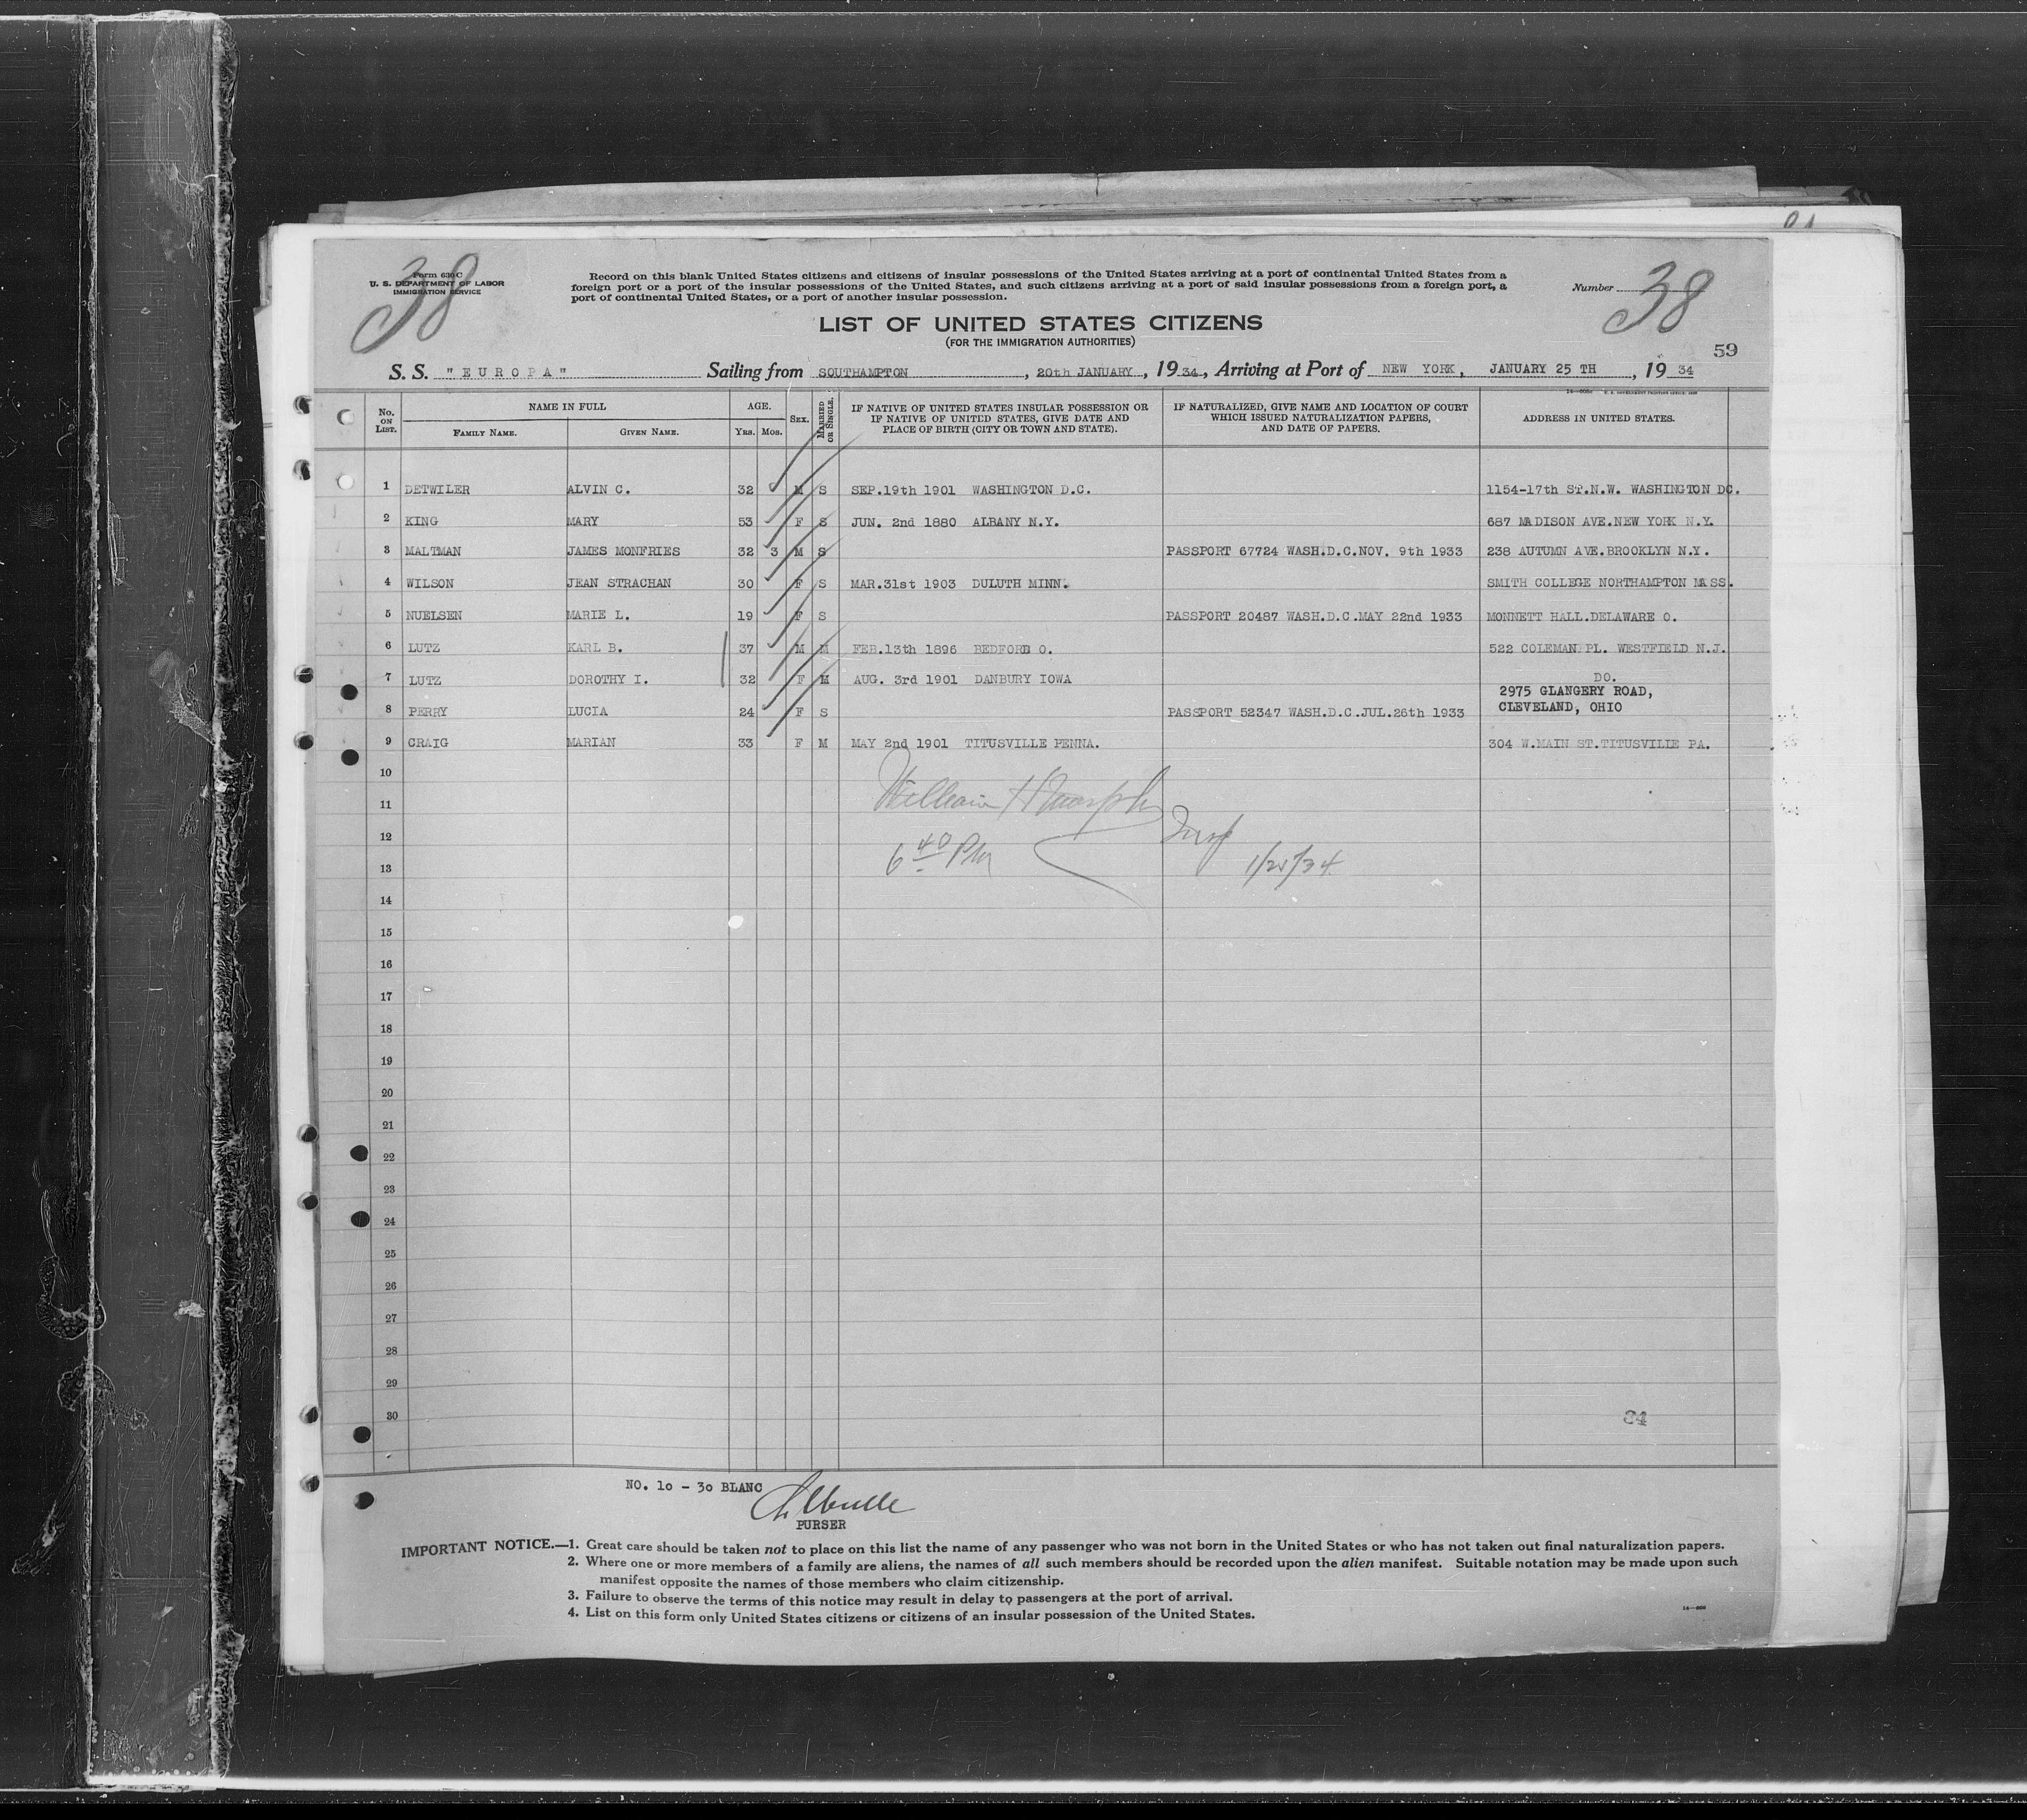 38
Form 630 C
U. S. DEPARTMENT OF LABOR
IMMIGRATION SERVICE
Record on this blank United States citizens and citizens of insular possessions of the United States arriving at a port of continental United States from a
foreign port or a port of the insular possessions of the United States, and such citizens arriving at a port of said insular possessions from a foreign port, a
port of continental United States, or a port of another insular possession.
Number 38
LIST OF UNITED STATES CITIZENS
(FOR THE IMMIGRATION AUTHORITIES)
59
S. S. "EUROPA" Sailing from SOUTHAMPTON, 20th JANUARY, 1934, Arriving at Port of NEW YORK, JANUARY 25 TH, 1934
No. ON LIST. NAME IN FULL FAMILY NAME. GIVEN NAME. AGE. YRS. MOS. SEX. MARRIED OR SINGLE. IF NATIVE OF UNITED STATES INSULAR POSSESSION OR IF NATIVE OF UNITED STATES, GIVE DATE AND PLACE OF BIRTH (CITY OR TOWN AND STATE). IF NATURALIZED, GIVE NAME AND LOCATION OF COURT WHICH ISSUED NATURALIZATION PAPERS, AND DATE OF PAPERS. ADDRESS IN UNITED STATES.
1 DETWILER ALVIN C. 32 M S SEP.19th 1901 WASHINGTON D.C. 1154-17th ST.N.W. WASHINGTON DC.
2 KING MARY 53 F S JUN. 2nd 1880 ALBANY N.Y. 687 MADISON AVE.NEW YORK N.Y.
3 MALTMAN JAMES MONFRIES 32 3 M S PASSPORT 67724 WASH.D.C.NOV. 9th 1933 238 AUTUMN AVE.BROOKLYN N.Y.
4 WILSON JEAN STRACHAN 30 F S MAR.31st 1903 DULUTH MINN. SMITH COLLEGE NORTHAMPTON MASS.
5 NUELSEN MARIE L. 19 F S PASSPORT 20487 WASH.D.C.MAY 22nd 1933 MONNETT HALL.DELAWARE O.
6 LUTZ KARL B. 37 M M FEB.13th 1896 BEDFORD O. 522 COLEMAN PL. WESTFIELD N.J.
7 LUTZ DOROTHY I. 32 F M AUG. 3rd 1901 DANBURY IOWA DO.
8 PERRY LUCIA 24 F S PASSPORT 52347 WASH.D.C.JUL.26th 1933 2975 GLANGERY ROAD, CLEVELAND, OHIO
9 CRAIG MARIAN 33 F M MAY 2nd 1901 TITUSVILLE PENNA. 304 W.MAIN ST.TITUSVILLE PA.
10
11 William H Murphy
12 Insp
13 6 40 PM 1/25/34
14
15
16
17
18
19
20
21
22
23
24
25
26
27
28
29
30
84
NO. 1o - 3o BLANC
PURSER
IMPORTANT NOTICE.—1. Great care should be taken not to place on this list the name of any passenger who was not born in the United States or who has not taken out final naturalization papers.
2. Where one or more members of a family are aliens, the names of all such members should be recorded upon the alien manifest. Suitable notation may be made upon such
manifest opposite the names of those members who claim citizenship.
3. Failure to observe the terms of this notice may result in delay to passengers at the port of arrival.
4. List on this form only United States citizens or citizens of an insular possession of the United States.